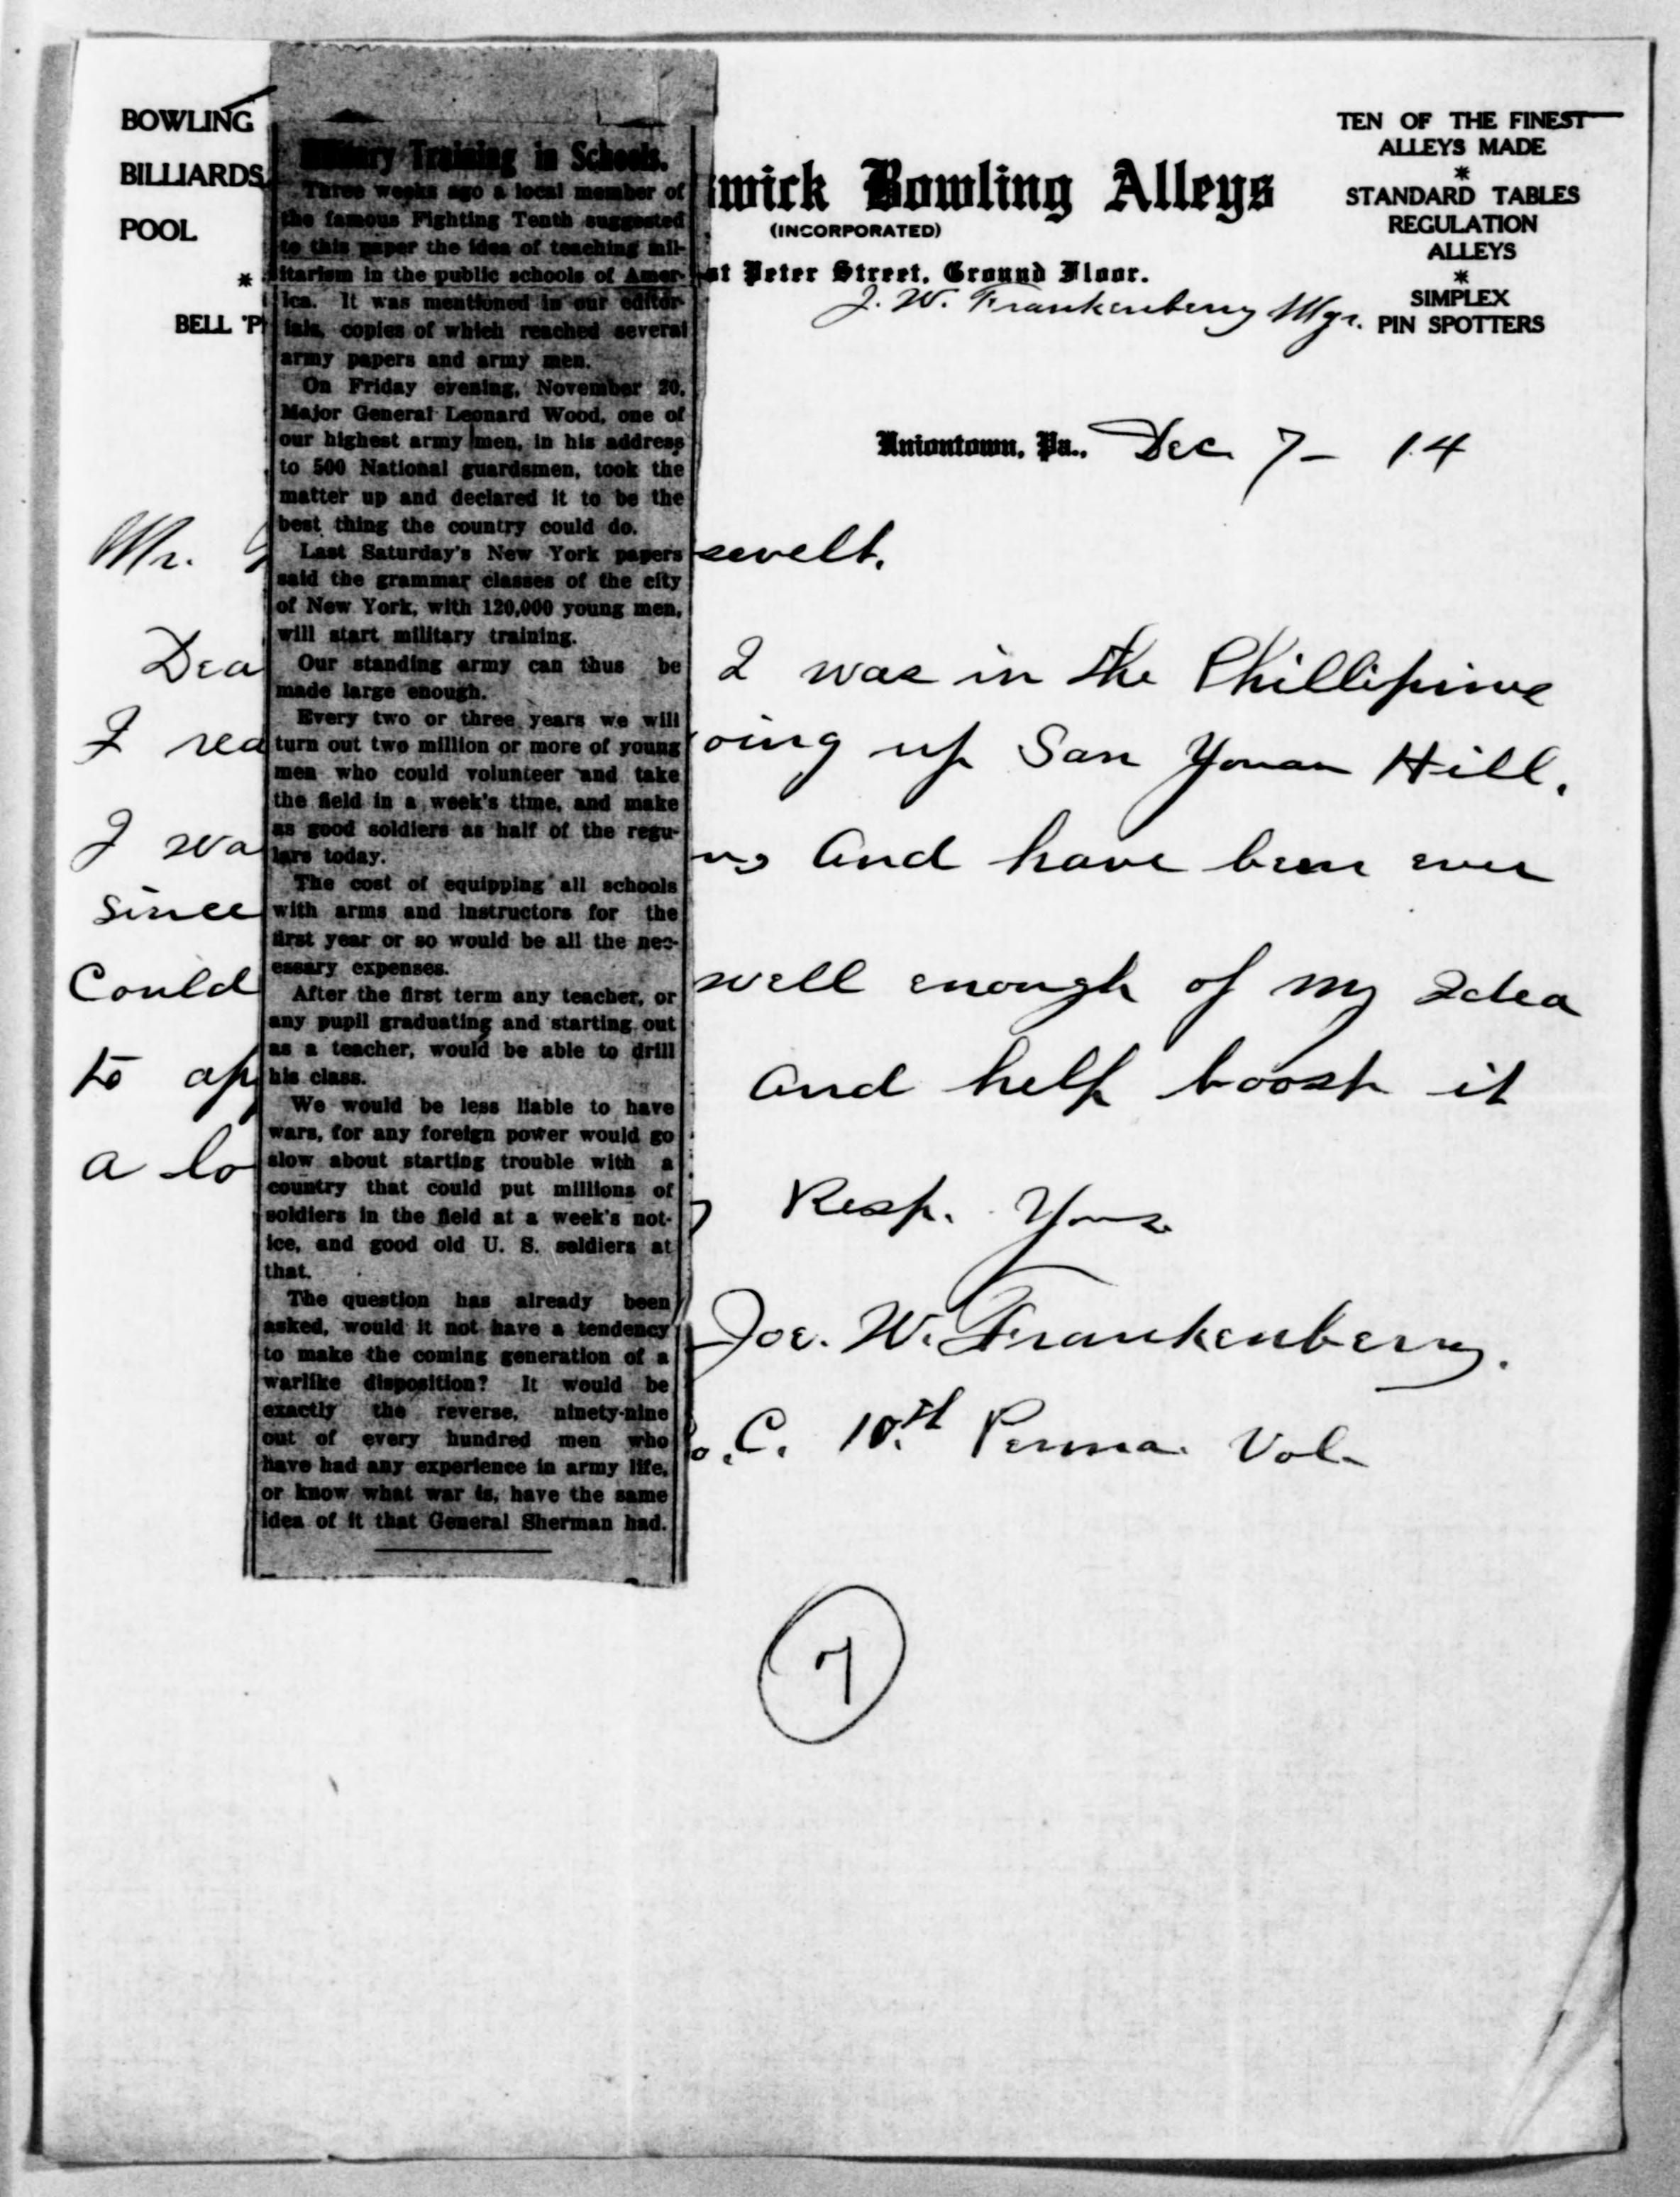 BOWLING
BILLIARDS
POOL
*
BELL 'P
wick Bowling Alleys
(INCORPORATED)
st Peter Street, Ground Floor.
J. W. Frankenberry Mgr.
TEN OF THE FINEST
ALLEYS MADE
*
STANDARD TABLES
REGULATION
ALLEYS
*
SIMPLEX
PIN SPOTTERS
Uniontown, Pa., Dec 7 - 14
Mr. sevelt.
Dea I was in the Phillipines
I rea oing up San Youan Hill.
I wa ns and have been ever
since
Could well enough of my Idea
to ap and help boost it
a lo
Resp. Yours
Joe. W. Frankenberry.
o. C. 10th Penna. Vol.
7
Military Training in Schools.
Three weeks ago a local member of
the famous Fighting Tenth suggested
to this paper the idea of teaching mil-
itarism in the public schools of Amer-
ica. It was mentioned in our editor-
ials, copies of which reached several
army papers and army men.
On Friday evening, November 20,
Major General Leonard Wood, one of
our highest army men, in his address
to 500 National guardsmen, took the
matter up and declared it to be the
best thing the country could do.
Last Saturday's New York papers
said the grammar classes of the city
of New York, with 120,000 young men,
will start military training.
Our standing army can thus be
made large enough.
Every two or three years we will
turn out two million or more of young
men who could volunteer and take
the field in a week's time, and make
as good soldiers as half of the regu-
lars today.
The cost of equipping all schools
with arms and instructors for the
first year or so would be all the nec-
essary expenses.
After the first term any teacher, or
any pupil graduating and starting out
as a teacher, would be able to drill
his class.
We would be less liable to have
wars, for any foreign power would go
slow about starting trouble with a
country that could put millions of
soldiers in the field at a week's not-
ice, and good old U. S. soldiers at
that.
The question has already been
asked, would it not have a tendency
to make the coming generation of a
warlike disposition? It would be
exactly the reverse, ninety-nine
out of every hundred men who
have had any experience in army life,
or know what war is, have the same
idea of it that General Sherman had.